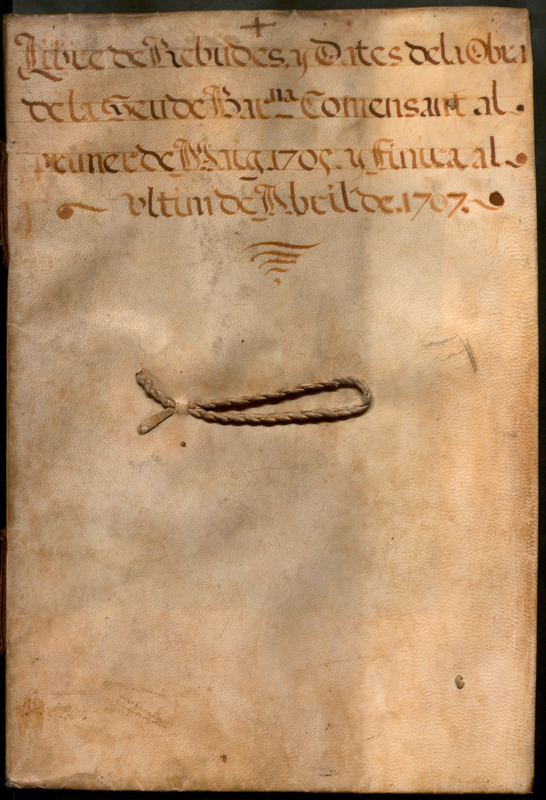 +
Llibre de Rebudes, y Dates de la Obra
de la Seu de Bar.na Comensant al
primer de Maig. 1705. y finira al
vltim de Abril de .1707.